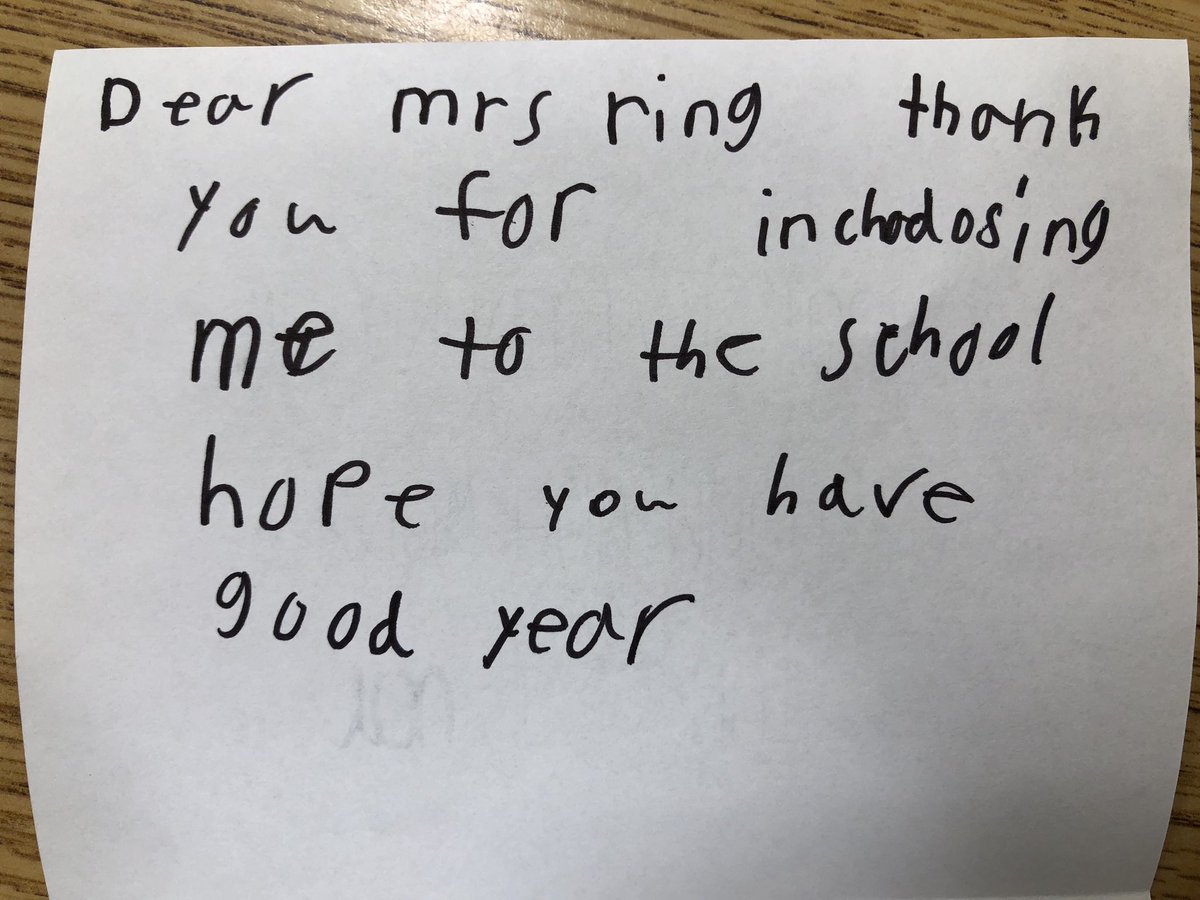 Dear mrs ring thank
you for inchodosing
me to the school
hope you have
good year